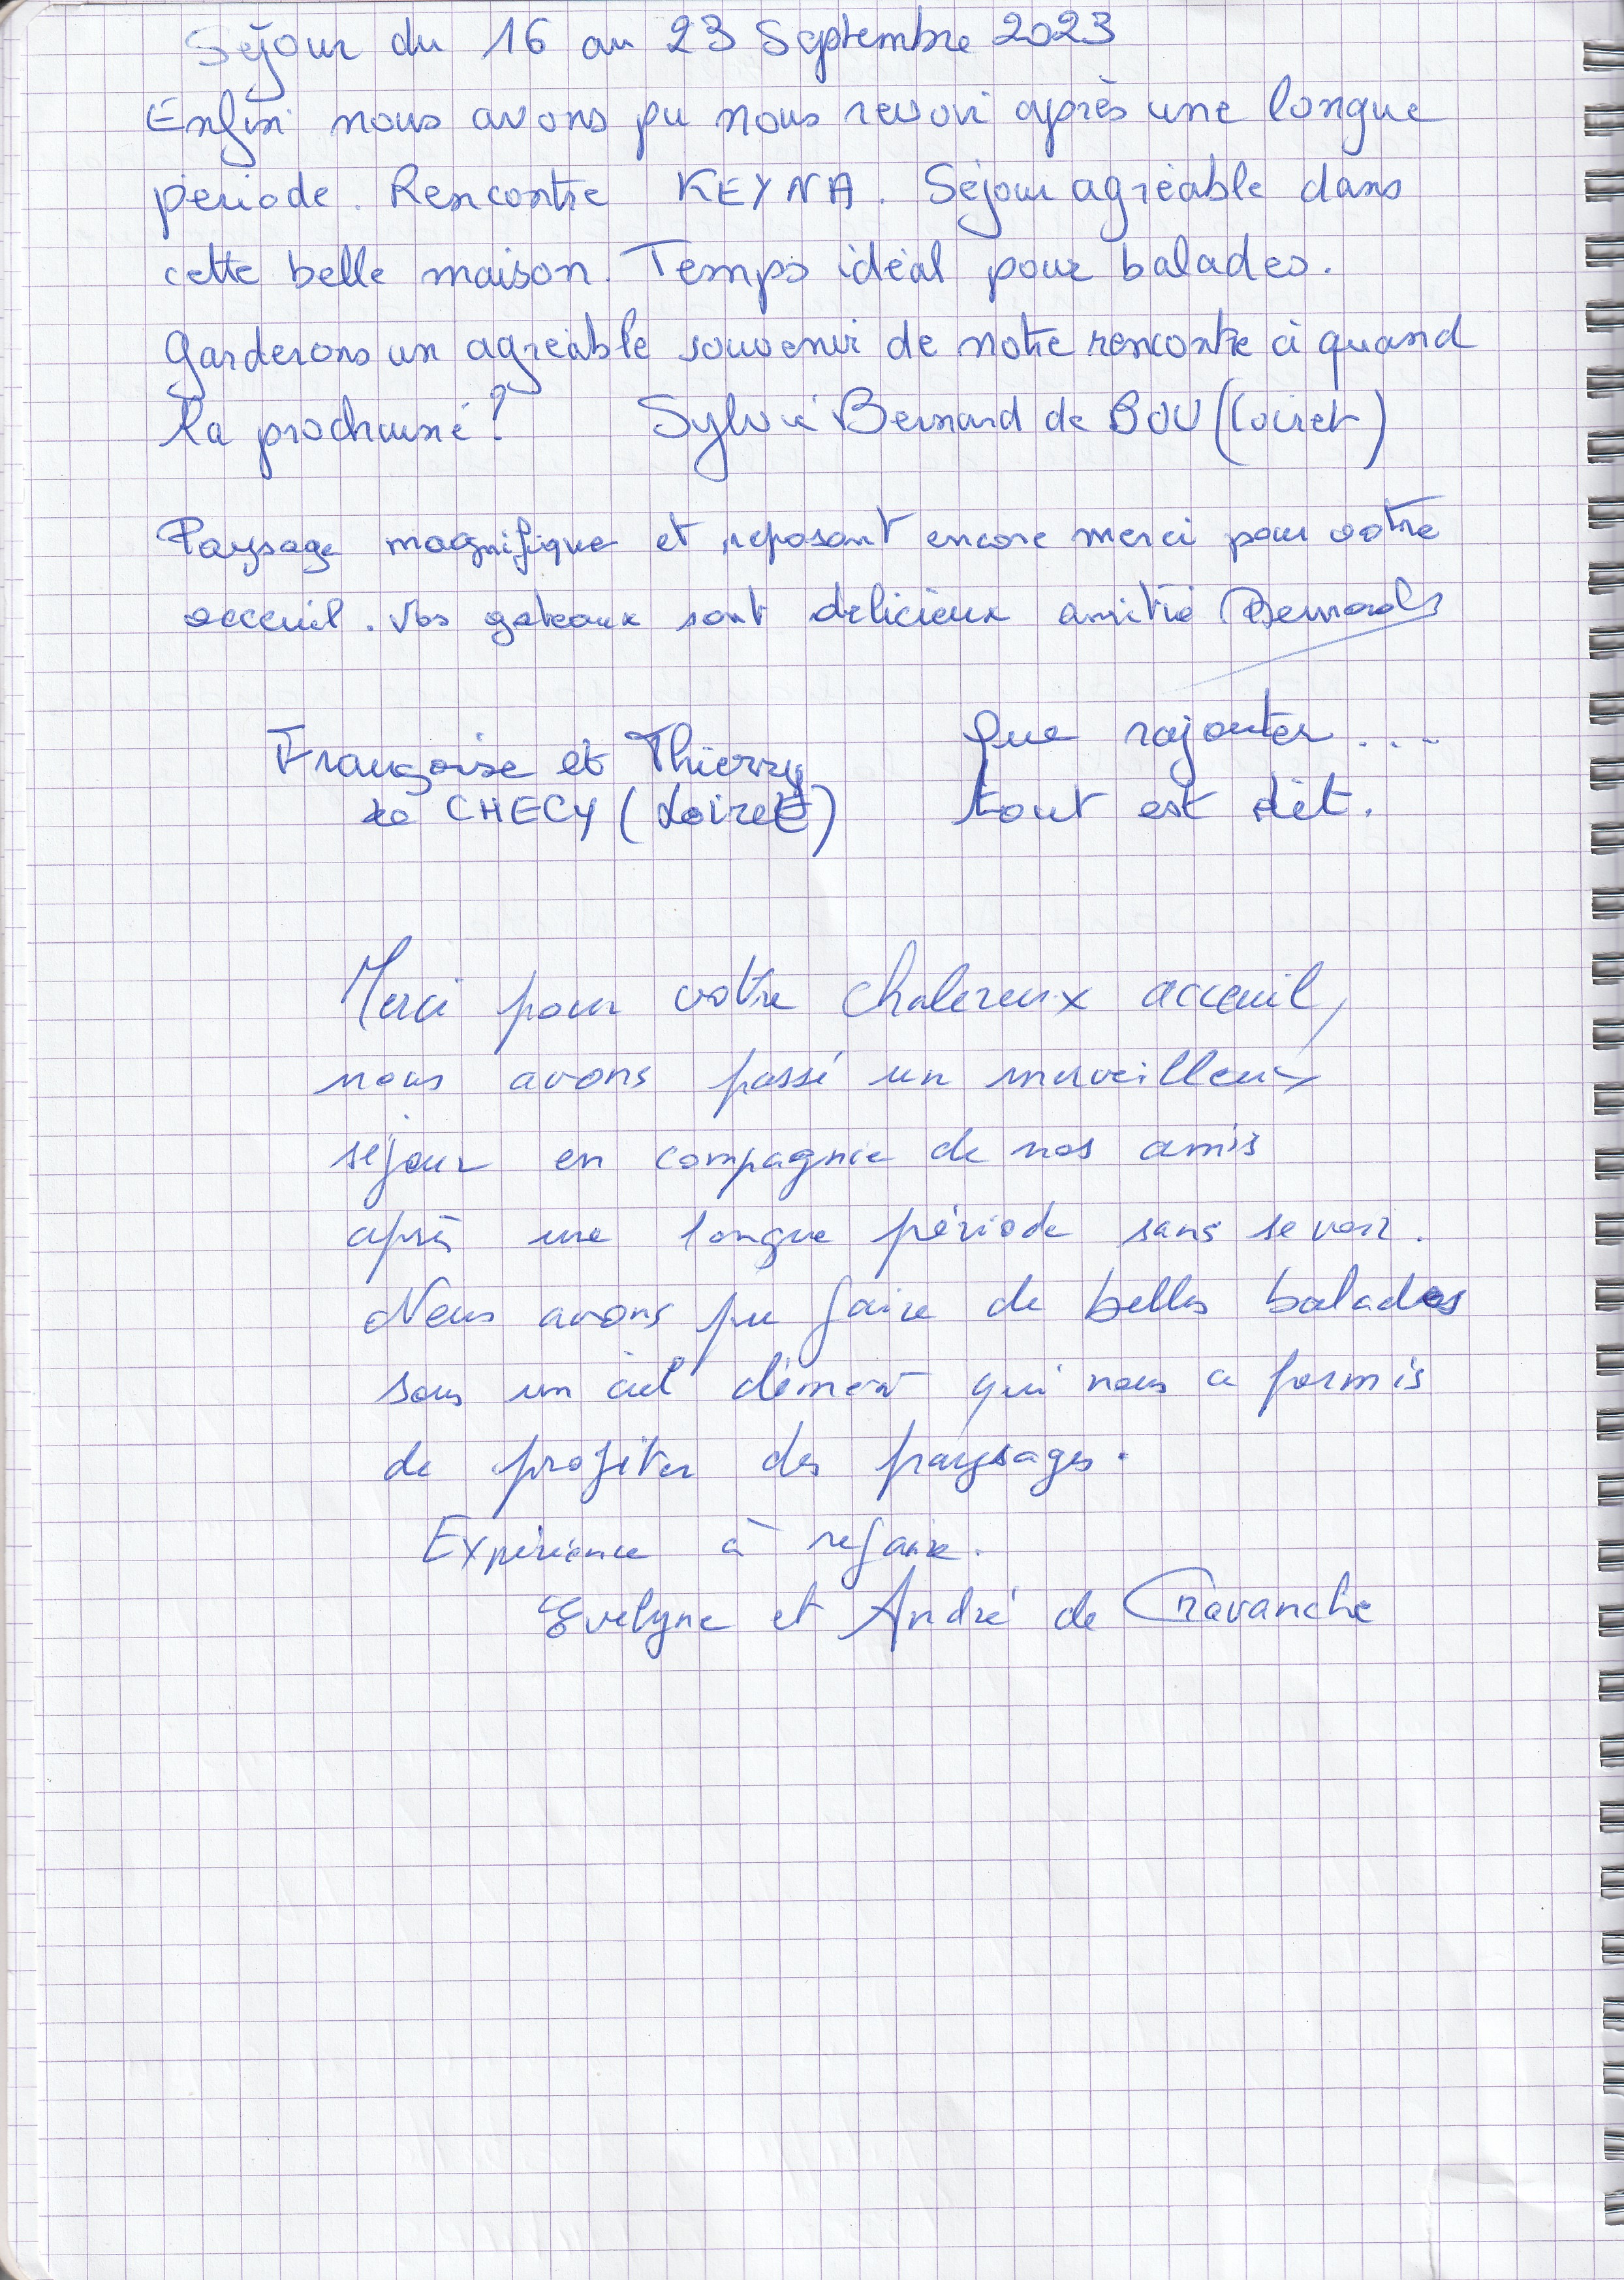 Séjour du 16 au 23 Septembre 2023
Enfin nous avons pu nous revoir après une longue
période. Rencontre KEYNA. Séjour agréable dans
cette belle maison. Temps idéal pour balades.
Garderons un agréable souvenir de notre rencontre à quand
la prochaine ? Sylvie Bernard de BOU (Loiret)
Paysage magnifique et reposant encore merci pour votre
acceuil. Vos gateaux sont delicieux amitié Bernard
Françoise et Thierry
de CHECY (Loiret)
Que rajouter ....
tout est dit.
Merci pour votre chalereux acceuil,
nous avons passé un merveilleux
séjour en compagnie de nos amis
après une longue période sans se voir.
Nous avons pu faire de belles balades
sous un ciel clément qui nous a permis
de profiter des paysages.
Expérience à refaire.
Evelyne et André de Cravanche